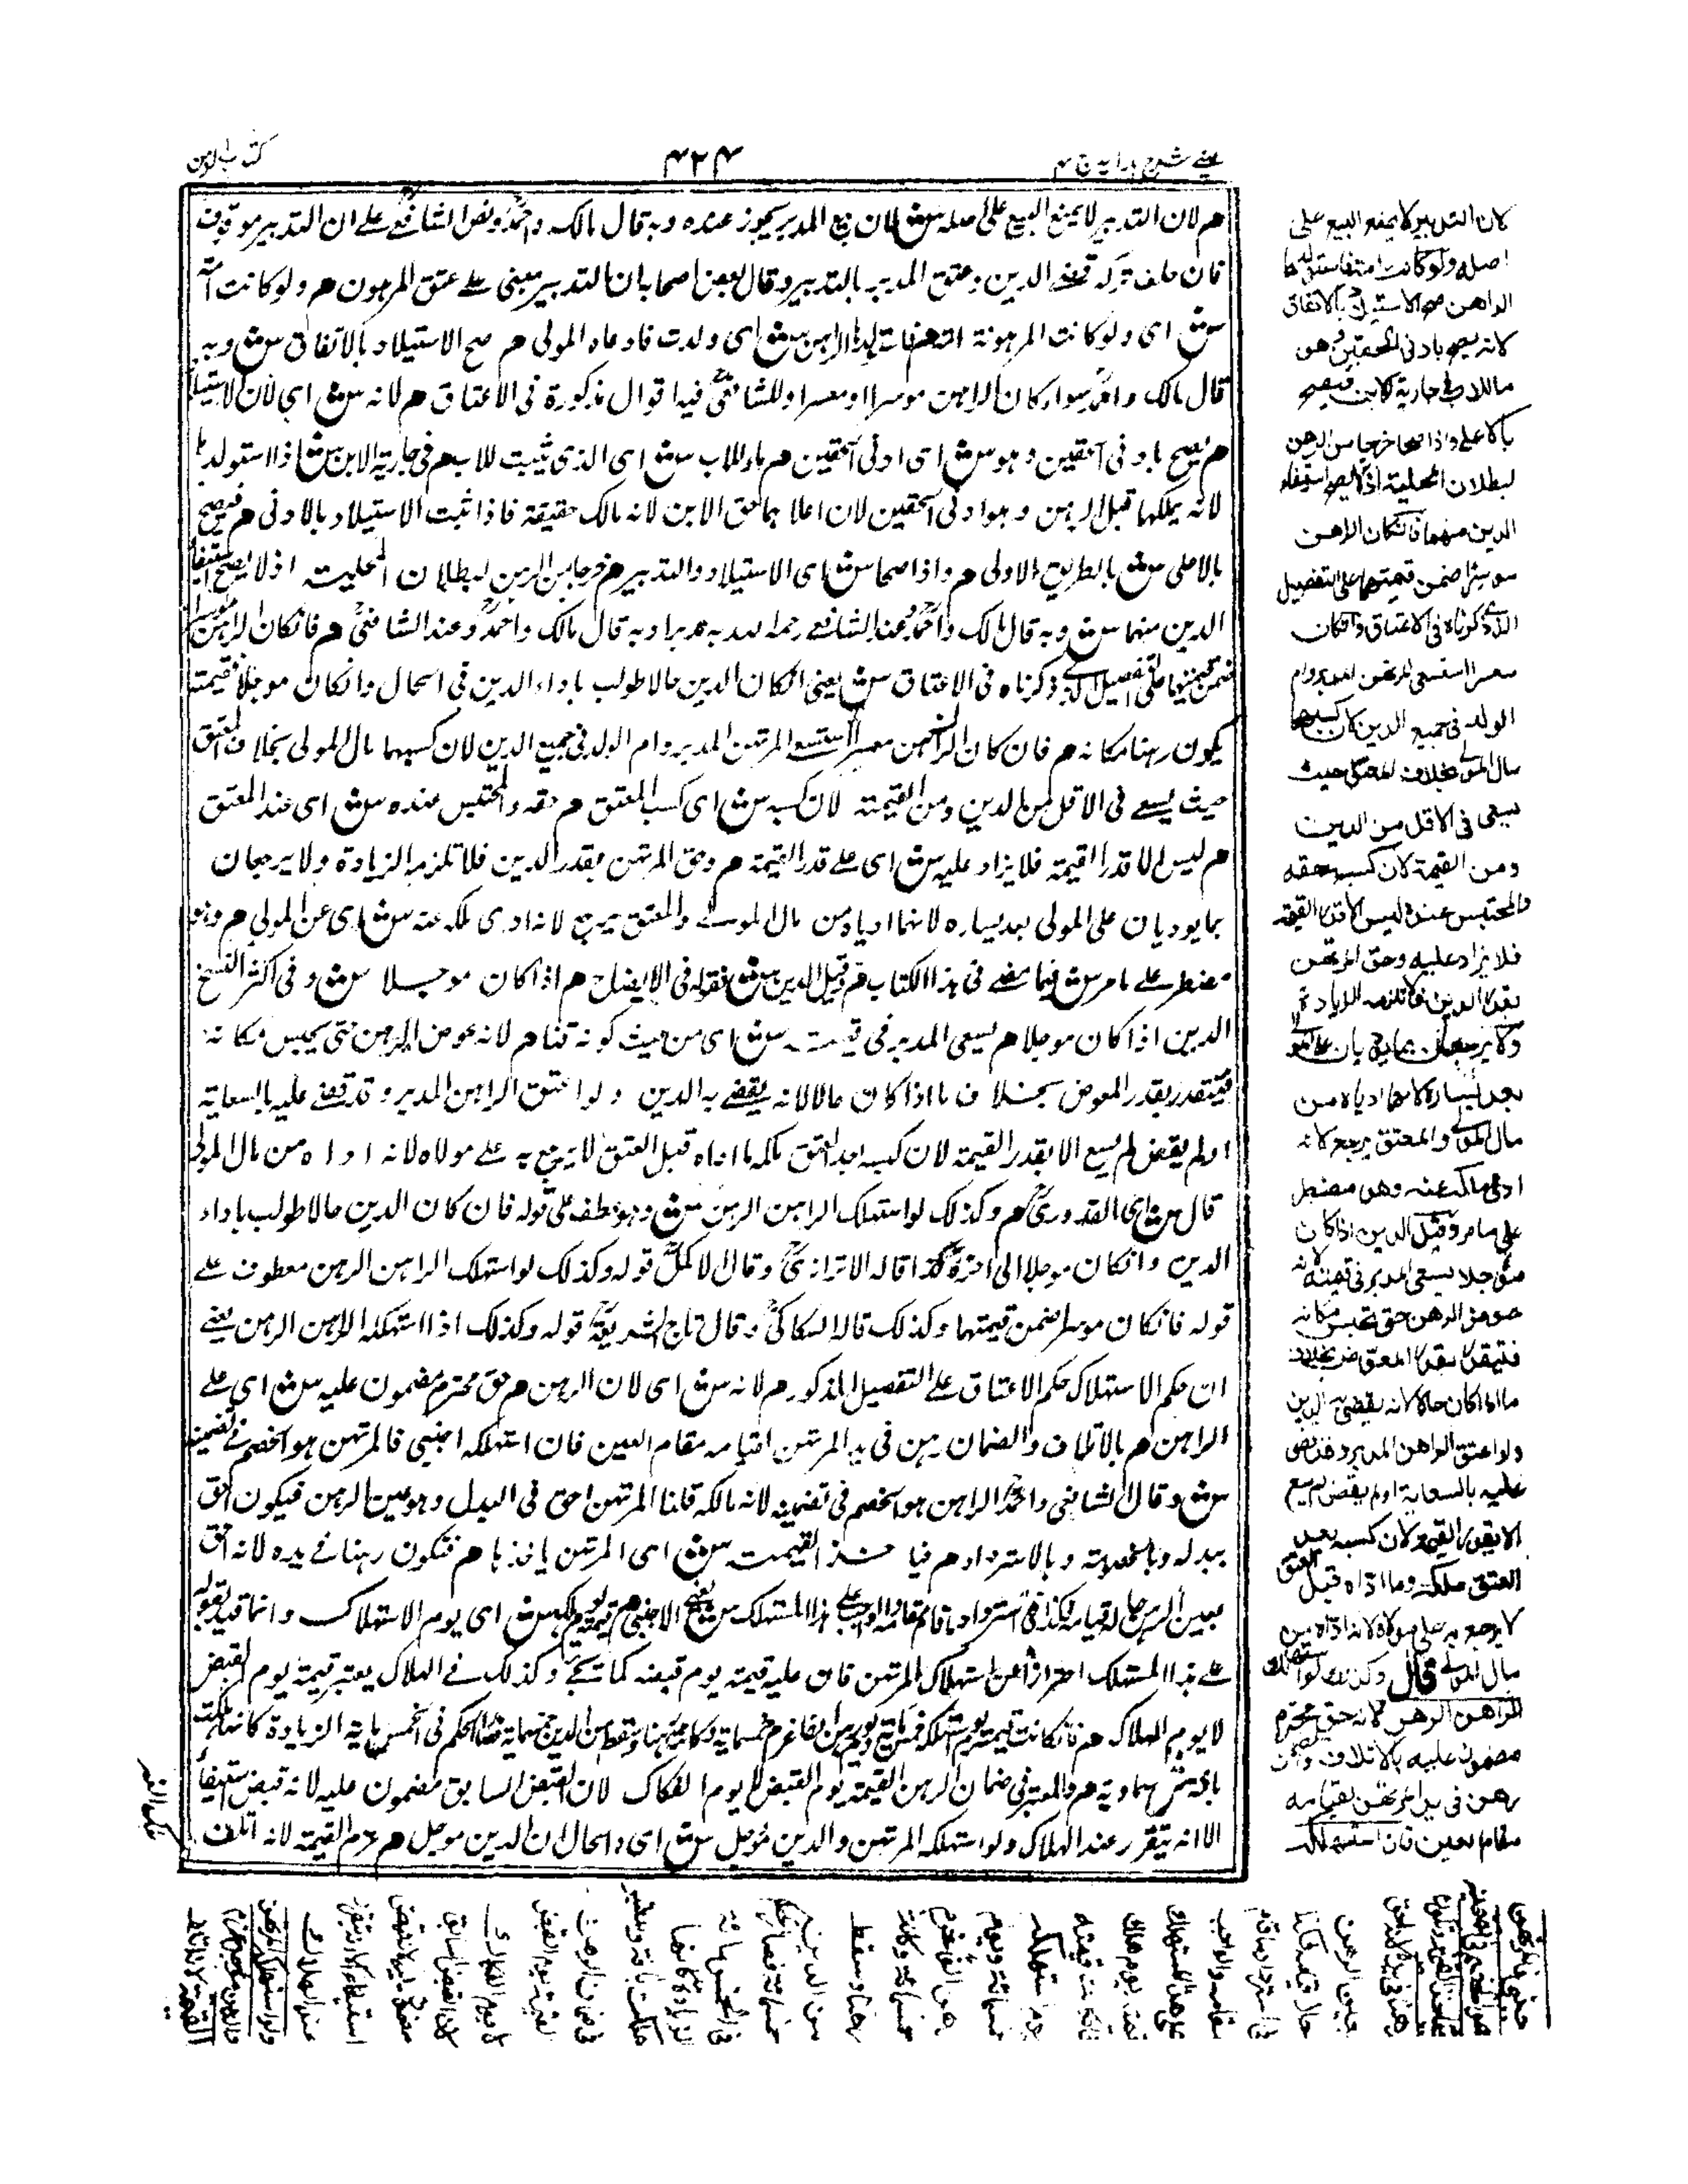 عينى شرح هدايه ج ٤
٤٢٤
كتاب الرهن
هم لان التدبير لا يمنع البيع على اصله سش لان بيع المدبر يجوز عنده وبه قال مالك واحمد ونص الشافعى على ان التدبير موقوف
فان خلف تركة قضى الدين وعتق المدبر بالتدبير وقال بعض اصحابنا ان التدبير مبنى على عتق المرهون هم ولو كانت امة
سش اى ولو كانت المرهونة امة هم فاستولدها الراهن سش اى ولدت فادعاه المولى هم صح الاستيلاد بالاتفاق سش وبه
قال مالك واحمد سواء كان الراهن موسرا او معسرا وللشافعى فيه اقوال مذكورة فى الاعتاق هم لانه سش اى لان الاستيلاد
هم يصح بادنى الحقين وهو سش اى ادنى الحقين هم ما للاب سش اى الذى يثبت للاب هم فى جارية الابن سش اذا استولدها
لانه يملكها قبل الرهن وهو ادنى الحقين لان اعلاهما حق الابن لانه مالك حقيقة فاذا ثبت الاستيلاد بالادنى هم فيصح
بالاعلى سش بالطريق الاولى هم واذا صحا سش اى الاستيلاد والتدبير هم خرجا من الرهن لبطلان المحلية اذ لا يصح استيفاء
الدين منهما سش وبه قال مالك واحمد وعند الشافعى رحمه الله به مدبرا وبه قال مالك واحمد وعند الشافعى هم فان كان الراهن موسرا
ضمن قيمتهما على التفصيل الذى ذكرناه فى الاعتاق سش يعنى ان كان الدين حالا طولب باداء الدين فى الحال وان كان موجلا فقيمته
يكون رهنا مكانه هم فان كان الراهن معسرا استسعى المرتهن المدبر وام الولد فى جميع الدين لان كسبهما مال المولى بخلاف المعتق
حيث يسعى فى الاقل من الدين ومن القيمة لان كسبه سش اى كسب المعتق هم حقه والمحتبس عنده سش اى عند المعتق
هم ليس الا قدر القيمة فلا يزاد عليه سش اى على قدر القيمة هم وحق المرتهن بقدر الدين فلا تلزمه الزيادة ولا يرجعان
بما يوديان على المولى بعد يساره لانهما ادياه من مال المولى والمعتق يرجع لانه ادى ملكه عنه سش اى عن المولى هم وهو
مضطر على ما مر سش فيما مضى فى هذا الكتاب هم وقيل الدين سش نقله فى الايضاح هم اذا كان موجلا سش وفى اكثر النسخ
الدين اذا كان موجلا هم يسعى المدبر فى قيمته سش اى من حيث كونه قنا هم لانه عوض الرهن حتى يحبس مكانه
فيتقدر بقدر المعوض بخلاف ما اذا كان حالا لانه يقضى به الدين ولو اعتق الراهن المدبر وقد قضى عليه بالسعاية
او لم يقض لم يسع الا بقدر القيمة لان كسبه بعد العتق ملكه وما اداه قبل العتق لا يرجع به على مولاه لانه اداه من مال المولى
قال سش اى القدورى هم وكذلك لو استهلك الراهن الرهن سش وهو عطف على قوله فان كان الدين حالا طولب باداء
الدين وان كان موجلا الى اخره هكذا قاله الاترازى وقال الاكمل قوله وكذلك لو استهلك الراهن الرهن معطوف على
قوله فان كان موسرا ضمن قيمتهما وكذلك قال السكاكى وقال تاج الشريعة قوله وكذلك اذا استهلك الراهن الرهن يعنى
ان حكم الاستهلاك حكم الاعتاق على التفصيل المذكور هم لانه سش اى لان الرهن هم حق محترم مضمون عليه سش اى على
الراهن هم بالاتلاف والضمان رهن فى يد المرتهن لقيامه مقام العين فان استهلكه اجنبى فالمرتهن هو الخصم فى تضمينه
سش وقال الشافعى واحمد الراهن هو الخصم فى تضمينه لانه مالكه قلنا المرتهن احق فى البدل وهو عين الرهن فيكون احق
ببدله وبالخصومة وبالاسترداد هم فياخذ القيمة سش اى المرتهن ياخذها هم فتكون رهنا فى يده لانه احق
بعين الرهن حال قيامه فكذا فى استرداد ما قام مقامه والواجب على هذا المستهلك سش يعنى الاجنبى هم قيمته يوم هلك سش اى يوم الاستهلاك وانما قيد بقوله
على هذا المستهلك احترازا عن استهلاك المرتهن فان عليه قيمته يوم قبضه كما يجئ وكذلك فى الهلاك يعتبر قيمته يوم القبض
لا يوم الهلاك هم فان كانت قيمته يوم استهلكه خمسمائة ويوم رهن الفا غرم خمسمائة وكانت رهنا وسقط من الدين خمسمائة فصار الحكم فى الخمسمائة الزيادة كانها هلكت
بآفة سش سماوية هم والمعتبر فى ضمان الرهن القيمة يوم القبض لا يوم الفكاك لان القبض السابق مضمون عليه لانه قبض استيفاء
الا انه يتقرر عند الهلاك ولو استهلكه المرتهن والدين موجل سش اى والحال ان الدين موجل هم غرم القيمة لانه اتلف
لان التدبير لا يمنع البيع على
اصله ولو كانت امة فاستولدها
الراهن صح الاستيلاد بالاتفاق
لانه يصح بادنى الحقين وهو
ما للاب فى جارية الابن فيصح
بالاعلى واذا صحا خرجا من الرهن
لبطلان المحلية اذ لا يصح استيفاء
الدين منهما فان كان الراهن
موسرا ضمن قيمتهما على التفصيل
الذى ذكرناه فى الاعتاق وان كان
معسرا استسعى المرتهن المدبر وام
الولد فى جميع الدين لان كسبهما
مال المولى بخلاف المعتق حيث
يسعى فى الاقل من الدين
ومن القيمة لان كسبه حقه
والمحتبس عنده ليس الا قدر القيمة
فلا يزاد عليه وحق المرتهن
بقدر الدين فلا تلزمه الزيادة
ولا يرجعان بما يوديان على المولى
بعد يساره لانهما ادياه من
مال المولى والمعتق يرجع لانه
ادى ملكه عنه وهو مضطر
على ما مر وقيل الدين اذا كان
موجلا يسعى المدبر فى قيمته لانه
عوض الرهن حتى تحبس مكانه
فيتقدر بقدر المعوض بخلاف
ما اذا كان حالا لانه يقضى به الدين
ولو اعتق الراهن المدبر وقد قضى
عليه بالسعاية او لم يقض لم يسع
الا بقدر القيمة لان كسبه بعد
العتق ملكه وما اداه قبل العتق
لا يرجع به على مولاه لانه اداه من
مال المولى قال وكذلك لو استهلك
الراهن الرهن لانه حق محترم
مضمون عليه بالاتلاف والضمان
رهن فى يد المرتهن لقيامه
مقام العين فان استهلكه
اجنبى فالمرتهن
هو الخصم فى تضمينه
فياخذ القيمة وتكون
رهنا فى يده لانه احق
بعين الرهن
حال قيامه فكذا
فى استرداد ما قام
مقامه والواجب
على هذا المستهلك
قيمته يوم هلك
فان كانت قيمته
يوم استهلكه
خمسمائة ويوم
رهن الفا غرم
خمسمائة وكانت
رهنا وسقط
من الدين
خمسمائة فصار الحكم
فى الخمسمائة
الزيادة كانها
هلكت بآفة والمعتبر
فى ضمان الرهن
القيمة يوم القبض
لا يوم الفكاك
لان القبض السابق
مضمون عليه لانه قبض
استيفاء الا انه يتقرر
عند الهلاك
ولو استهلكه المرتهن
والدين موجل غرم
القيمة لانه اتلف
ملك الغير